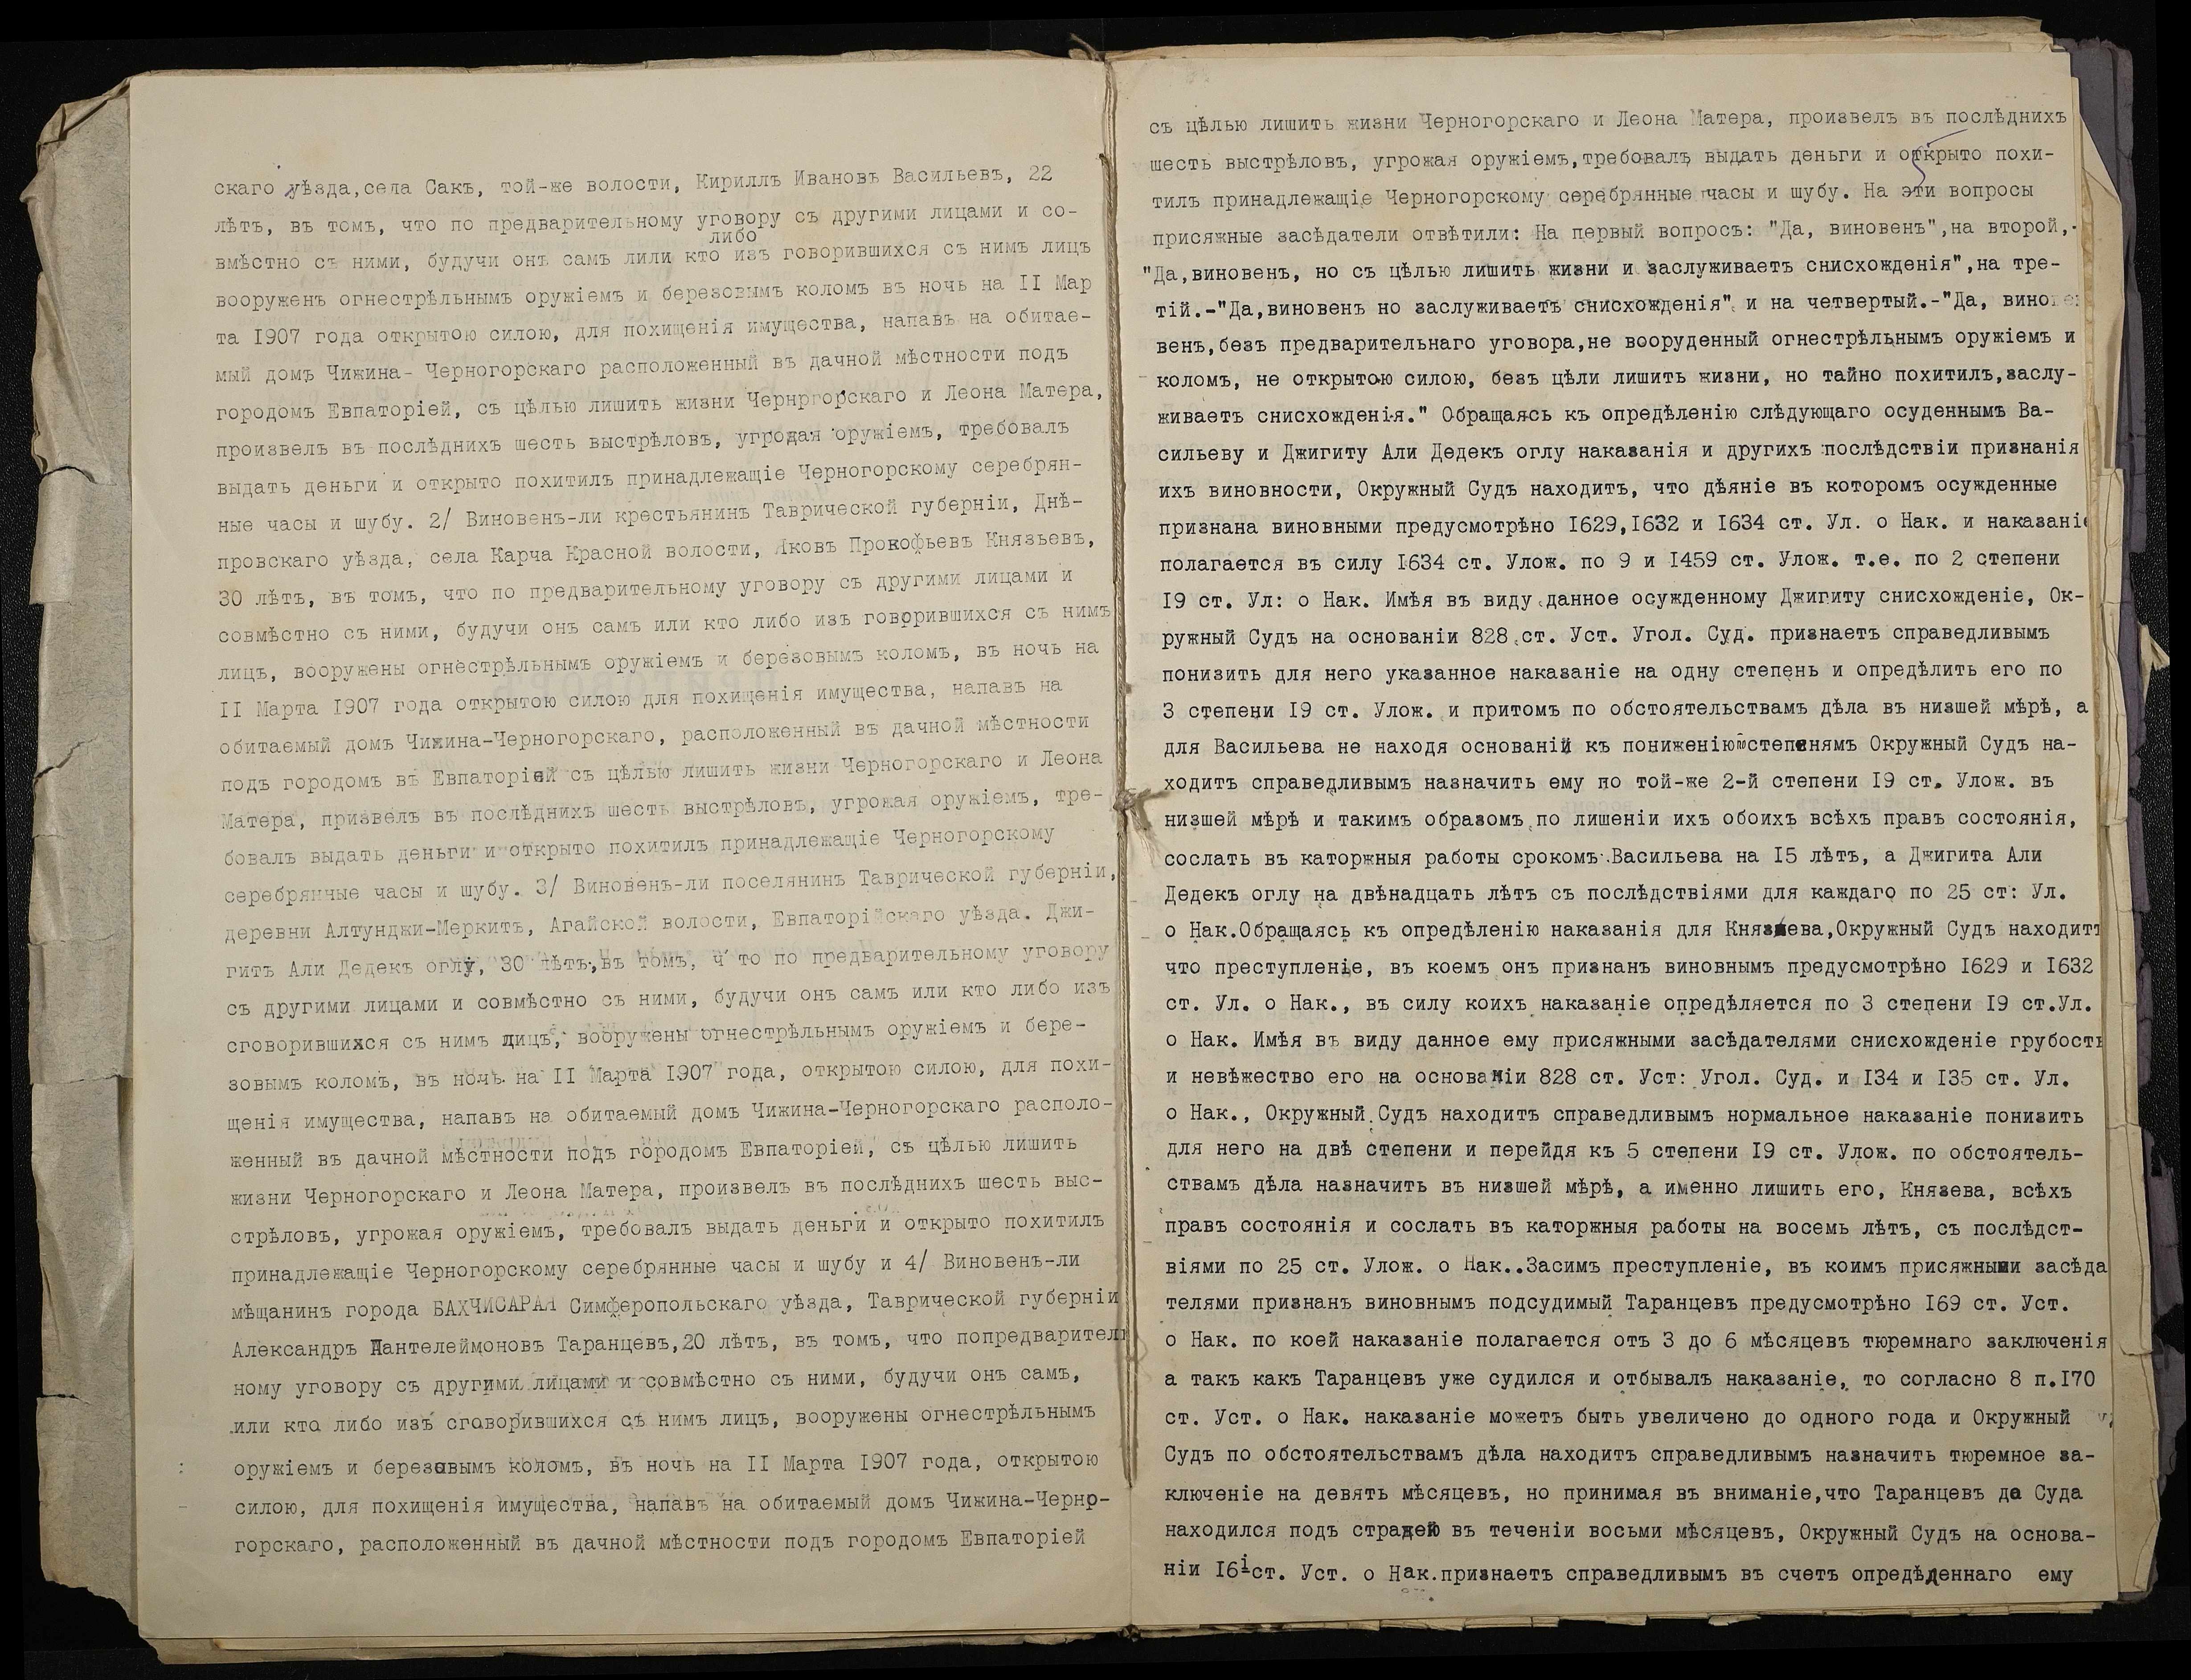 скаго уѣзда,села Сакъ, той-же волости, Кириллъ Ивановъ Васильевъ, 22
лѣтъ, въ томъ, что по предварительному уговору съ другими лицами и со-
либо
вмѣстно съ ними, будучи онъ самъ лили кто изъ говорившихся съ нимъ лицъ
вооруженъ огнестрѣльнымъ оружіемъ и березовымъ коломъ въ ночь на II Мар
та 1907 года открытою силою, для похищенія имущества, напавъ на обитае-
мый домъ Чижина- Черногорскаго расположенный въ дачной мѣстности подъ
городомъ Евпаторіей, съ цѣлью лишить жизни Чернргорскаго и Леона Матера,
произвелъ въ послѣднихъ шесть выстрѣловъ, угрожая оружіемъ, требовалъ
выдать деньги и открыто похитилъ принадлежащіе Черногорскому серебрян-
ные часы и шубу. 2/ Виновенъ-ли крестьянинъ Таврической губерніи, Днѣ-
провскаго уѣзда, села Карча Красной волости, Яковъ Прокофьевъ Князьевъ,
30 лѣтъ, въ томъ, что по предварительному уговору съ другими лицами и
совмѣстно съ ними, будучи онъ самъ или кто либо изъ говорившихся съ нимъ
лицъ, вооружены огнестрѣльнымъ оружіемъ и березовымъ коломъ, въ ночь на
II Марта 1907 года открытою силою для похищенія имущества, напавъ на
обитаемый домъ Чижина-Черногорскаго, расположенный въ дачной мѣстности
подъ городомъ въ Евпаторіей съ цѣлью лишить жизни Черногорскаго и Леона
Матера, призвелъ въ послѣднихъ шесть выстрѣловъ, угрожая оружіемъ, тре-
бовалъ выдать деньги и открыто похитилъ принадлежащіе Черногорскому
серебрянные часы и шубу. 3/ Виновенъ-ли поселянинъ Таврической губерніи,
деревни Алтунджи-Меркитъ, Агайской волости, Евпаторійскаго уѣзда. Джи-
гитъ Али Дедекъ оглу, 30 лѣтъ,въ томъ, ч то по предварительному уговору
съ другими лицами и совмѣстно съ ними, будучи онъ самъ или кто либо изъ
сговорившихся съ нимъ лицъ, вооружены огнестрѣльнымъ оружіемъ и бере-
зовымъ коломъ, въ ночь на II Марта 1907 года, открытою силою, для похи-
щенія имущества, напавъ на обитаемый домъ Чижина-Черногорскаго располо-
женный въ дачной мѣстности подъ городомъ Евпаторіей, съ цѣлью лишить
жизни Черногорскаго и Леона Матера, произвелъ въ послѣднихъ шесть выс-
стрѣловъ, угрожая оружіемъ, требовалъ выдать деньги и открыто похитилъ
принадлежащіе Черногорскому серебрянные часы и шубу и 4/ Виновенъ-ли
мѣщанинъ города БАХЧИСАРАЯ Симферопольскаго уѣзда, Таврической губерніи
Александръ Пантелеймоновъ Таранцевъ,20 лѣтъ, въ томъ, что попредварител
ному уговору съ другими лицами и совмѣстно съ ними, будучи онъ самъ,
или кто либо изъ сговорившихся съ нимъ лицъ, вооружены огнестрѣльнымъ
оружіемъ и березовымъ коломъ, въ ночь на II Марта 1907 года, открытою
силою, для похищенія имущества, напавъ на обитаемый домъ Чижина-Чернр-
горскаго, расположенный въ дачной мѣстности подъ городомъ Евпаторіей
съ цѣлью лишить жизни Черногорскаго и Леона Матера, произвелъ въ послѣднихъ
шесть выстрѣловъ, угрожая оружіемъ,требовалъ выдать деньги и открыто похи-
тилъ принадлежащіе Черногорскому серебрянные часы и шубу. На эти вопросы
присяжные засѣдатели отвѣтили: На первый вопросъ: "Да, виновенъ",на второй,-
"Да,виновенъ, но съ цѣлью лишить жизни и заслуживаетъ снисхожденія",на тре-
тій.-"Да,виновенъ но заслуживаетъ снисхожденія" и на четвертый.-"Да, вино
венъ,безъ предварительнаго уговора,не вооруденный огнестрѣльнымъ оружіемъ и
коломъ, не открытою силою, безъ цѣли лишить жизни, но тайно похитилъ,заслу-
живаетъ снисхожденія." Обращаясь къ опредѣленію слѣдующаго осуденнымъ Ва-
сильеву и Джигиту Али Дедекъ оглу наказанія и другихъ послѣдствіи признанія
ихъ виновности, Окружный Судъ находитъ, что дѣяніе въ которомъ осужденные
признана виновными предусмотрѣно 1629,1632 и 1634 ст. Ул. о Нак. и наказаніе
полагается въ силу 1634 ст. Улож. по 9 и 1459 ст. Улож. т.е. по 2 степени
19 ст. Ул: о Нак. Имѣя въ виду данное осужденному Джигиту снисхожденіе, Ок-
ружный Судъ на основаніи 828 ст. Уст. Угол. Суд. признаетъ справедливымъ
понизить для него указанное наказаніе на одну степень и опредѣлить его по
3 степени 19 ст. Улож. и притомъ по обстоятельствамъ дѣла въ низшей мѣрѣ, а
для Васильева не находя основаній къ пониженію по степенямъ Окружный Судъ на-
ходитъ справедливымъ назначить ему по той-же 2-й степени 19 ст. Улож. въ
низшей мѣрѣ и такимъ образомъ по лишеніи ихъ обоихъ всѣхъ правъ состоянія,
сослать въ каторжныя работы срокомъ Васильева на 15 лѣтъ, а Джигита Али
Дедекъ оглу на двѣнадцать лѣтъ съ послѣдствіями для каждаго по 25 ст: Ул.
о Нак.Обращаясь къ опредѣленію наказанія для Князева,Окружный Судъ находитъ
что преступленіе, въ коемъ онъ признанъ виновнымъ предусмотрѣно 1629 и 1632
ст. Ул. о Нак., въ силу коихъ наказаніе опредѣляется по 3 степени 19 ст.Ул.
о Нак. Имѣя въ виду данное ему присяжными засѣдателями снисхожденіе грубость
и невѣжество его на основаніи 828 ст. Уст: Угол. Суд. и 134 и 135 ст. Ул.
о Нак., Окружный Судъ находитъ справедливымъ нормальное наказаніе понизить
для него на двѣ степени и перейдя къ 5 степени 19 ст. Улож. по обстоятель-
ствамъ дѣла назначить въ низшей мѣрѣ, а именно лишить его, Князева, всѣхъ
правъ состоянія и сослать въ каторжныя работы на восемь лѣтъ, съ послѣдст-
віями по 25 ст. Улож. о Нак..Засимъ преступленіе, въ коимъ присяжными засѣда
телями признанъ виновнымъ подсудимый Таранцевъ предусмотрѣно 169 ст. Уст.
о Нак. по коей наказаніе полагается отъ 3 до 6 мѣсяцевъ тюремнаго заключенія
а такъ какъ Таранцевъ уже судился и отбывалъ наказаніе, то согласно 8 п.170
ст. Уст. о Нак. наказаніе можетъ быть увеличено до одного года и Окружный
Судъ по обстоятельствамъ дѣла находитъ справедливымъ назначить тюремное за-
ключеніе на девять мѣсяцевъ, но принимая въ вниманіе,что Таранцевъ до Суда
находился подъ стражею въ теченіи восьми мѣсяцевъ, Окружный Судъ на основа-
ніи 16¹ст. Уст. о Нак.признаетъ справедливымъ въ счетъ опредѣленнаго ему